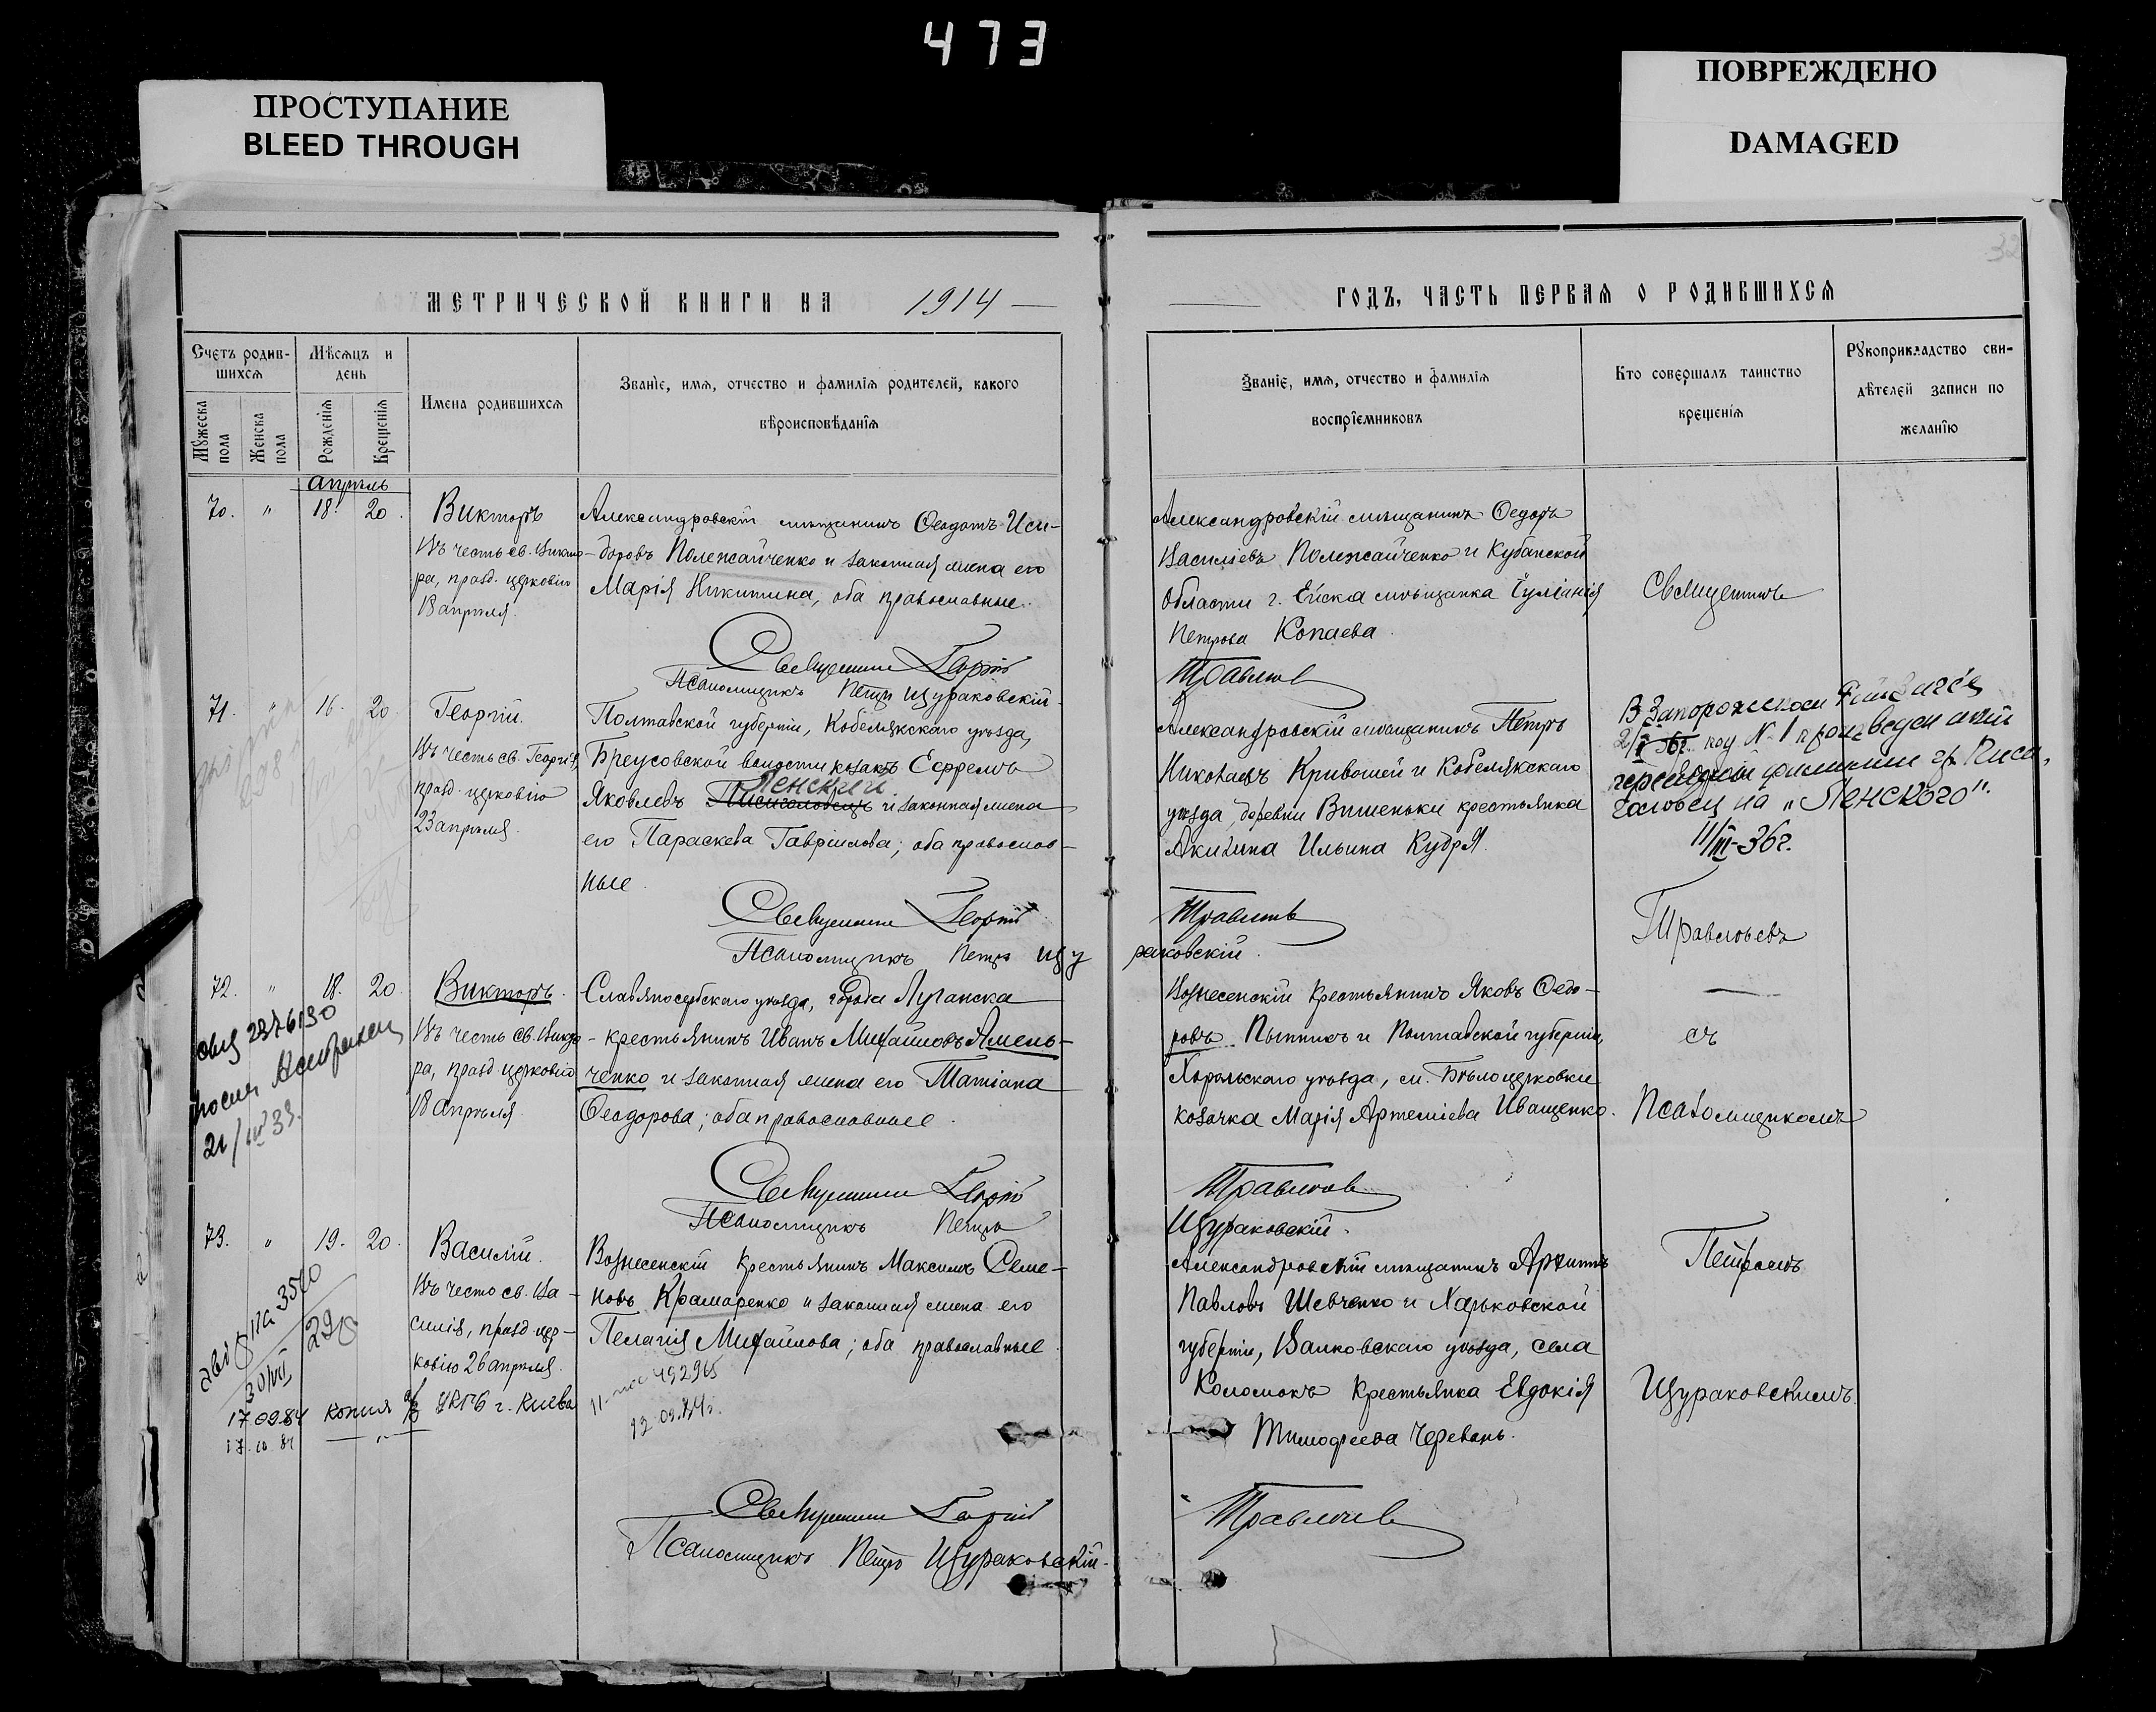 473
ПРОСТУПАНИЕ
BLEED THROUGH
ПОВРЕЖДЕНО
DAMAGED
МЕТРИЧЕСКОЙ КНИГИ НА 1914
ГОДЪ, ЧАСТЬ ПЕРВАЯ О РОДИВШИХСЯ
32
Счетъ родив-
шихся
Мѣсяцъ и
день
Мужеска
пола
Женска
пола
Рожденія
Крещенія
Имена родившихся
Званіе, имя, отчество и фамилія родителей, какого
вѣроисповѣданія
Званіе, имя, отчество и фамилія
воспріемниковъ
Кто совершалъ таинство
крещенія
Рукоприкладство сви-
дѣтелей записи по
желанію
апрѣль
70. " 18. 20.
Викторъ
Въ честь св. Викто-
ра, празд. церковію
18 апрѣля.
Александровскій мѣщанинъ Ѳеодотъ Иси-
доровъ Полежайченко и законная жена его
Марія Никитина, оба православные.
Священникъ Георгій
Псаломщикъ Петръ Щураковскій.
Александровскій мѣщанинъ Ѳедоръ
Васильевъ Полежайченко и Кубанской
области г. Ейска мѣщанка Іуліанія
Петрова Копаева.
Травлѣев
Священникъ
71. " 16. 20.
Георгій.
Въ честь св. Георгія,
празд. церковію
23 апрѣля.
Полтавской губерніи, Кобелякскаго уѣзда,
Бреусовской волости козакъ Ефремъ
Ленский
Яковлевъ Писаголовецъ и законная жена
его Параскева Гавріилова; оба православ-
ные.
Священникъ Георгій
Псаломщикъ Петръ Щу
Александровскій мѣщанинъ Петръ
Николаевъ Кривошей и Кобелякскаго
уѣзда, деревни Вишеньки крестьянка
Акилина Ильина Кудря.
раковскій.
В Запорожском
под № 1 произведен
фамилии гр. Писа-
головец на "Ленского".
11/III-36г.
72. " 18. 20.
Викторъ.
Въ честь св. Викто-
ра, празд. церковію
18 апрѣля.
21/ 33.
Славяносербскаго уѣзда, города Луганска
крестьянинъ Иванъ Михайловъ Амель-
ченко и законная жена его Татіана
Ѳеодорова; оба православные.
Священникъ Георгій
Псаломщикъ Петръ
Вознесенскій крестьянинъ Яковъ Ѳедо-
ровъ и Полтавской губерніи,
Хорольскаго уѣзда, м. Бѣлоцерковки
козачка Марія Артеміева Иващенко.
Щураковскій.
съ
Псаломщикомъ
73. " 19. 20.
Василій.
Въ честь св. Ва-
силія, празд. цер-
ковію 26 апрѣля.
Вознесенскій крестьянинъ Максимъ Семе-
новъ Крамаренко и законная жена его
Пелагія Михайлова; оба православные.
492965
12.09.84г.
17.09.84 копия г. Киева
17.10.84
Священникъ Георгій
Псаломщикъ Петръ Щураковскій.
Александровскій мѣщанинъ Архипъ
Павловъ Шевченко и Харьковской
губерніи, Валковскаго уѣзда, села
Коломокъ крестьянка Евдокія
Тимофеева Черевань.
Петромъ
Щураковскимъ.